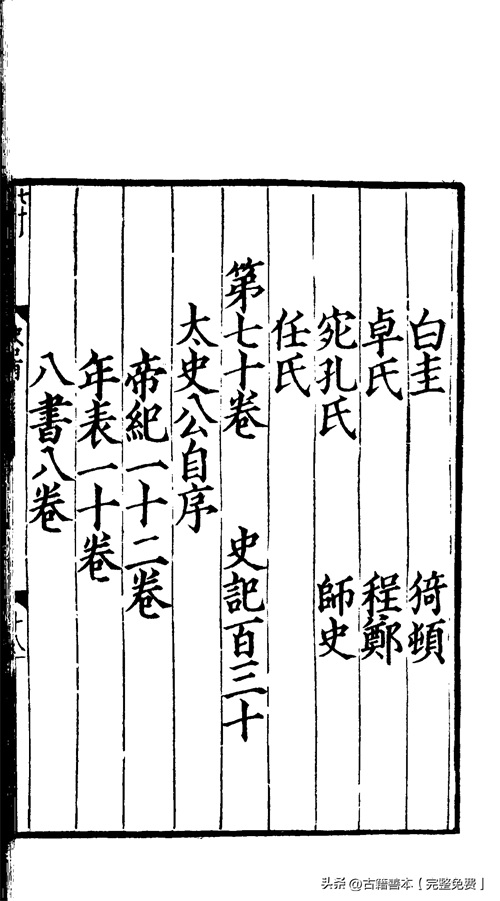 白圭 猗頓
卓氏 程鄭
宛孔氏 師史
任氏
第七十卷 史記百三十
太史公自序
帝紀一十二卷
年表一十卷
八書八卷
十八
头条 @古籍善本【完整免费】